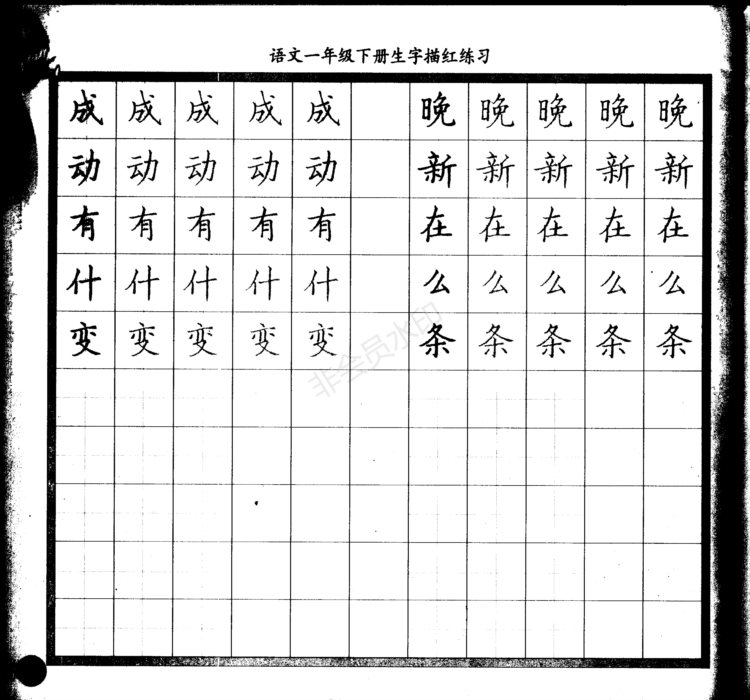 语文一年级下册生字描红练习
成 成 成 成 成 晚 晚 晚 晚 晚
动 动 动 动 动 新 新 新 新 新
有 有 有 有 有 在 在 在 在 在
什 什 什 什 什 么 么 么 么 么
变 变 变 变 变 条 条 条 条 条
非会员水印